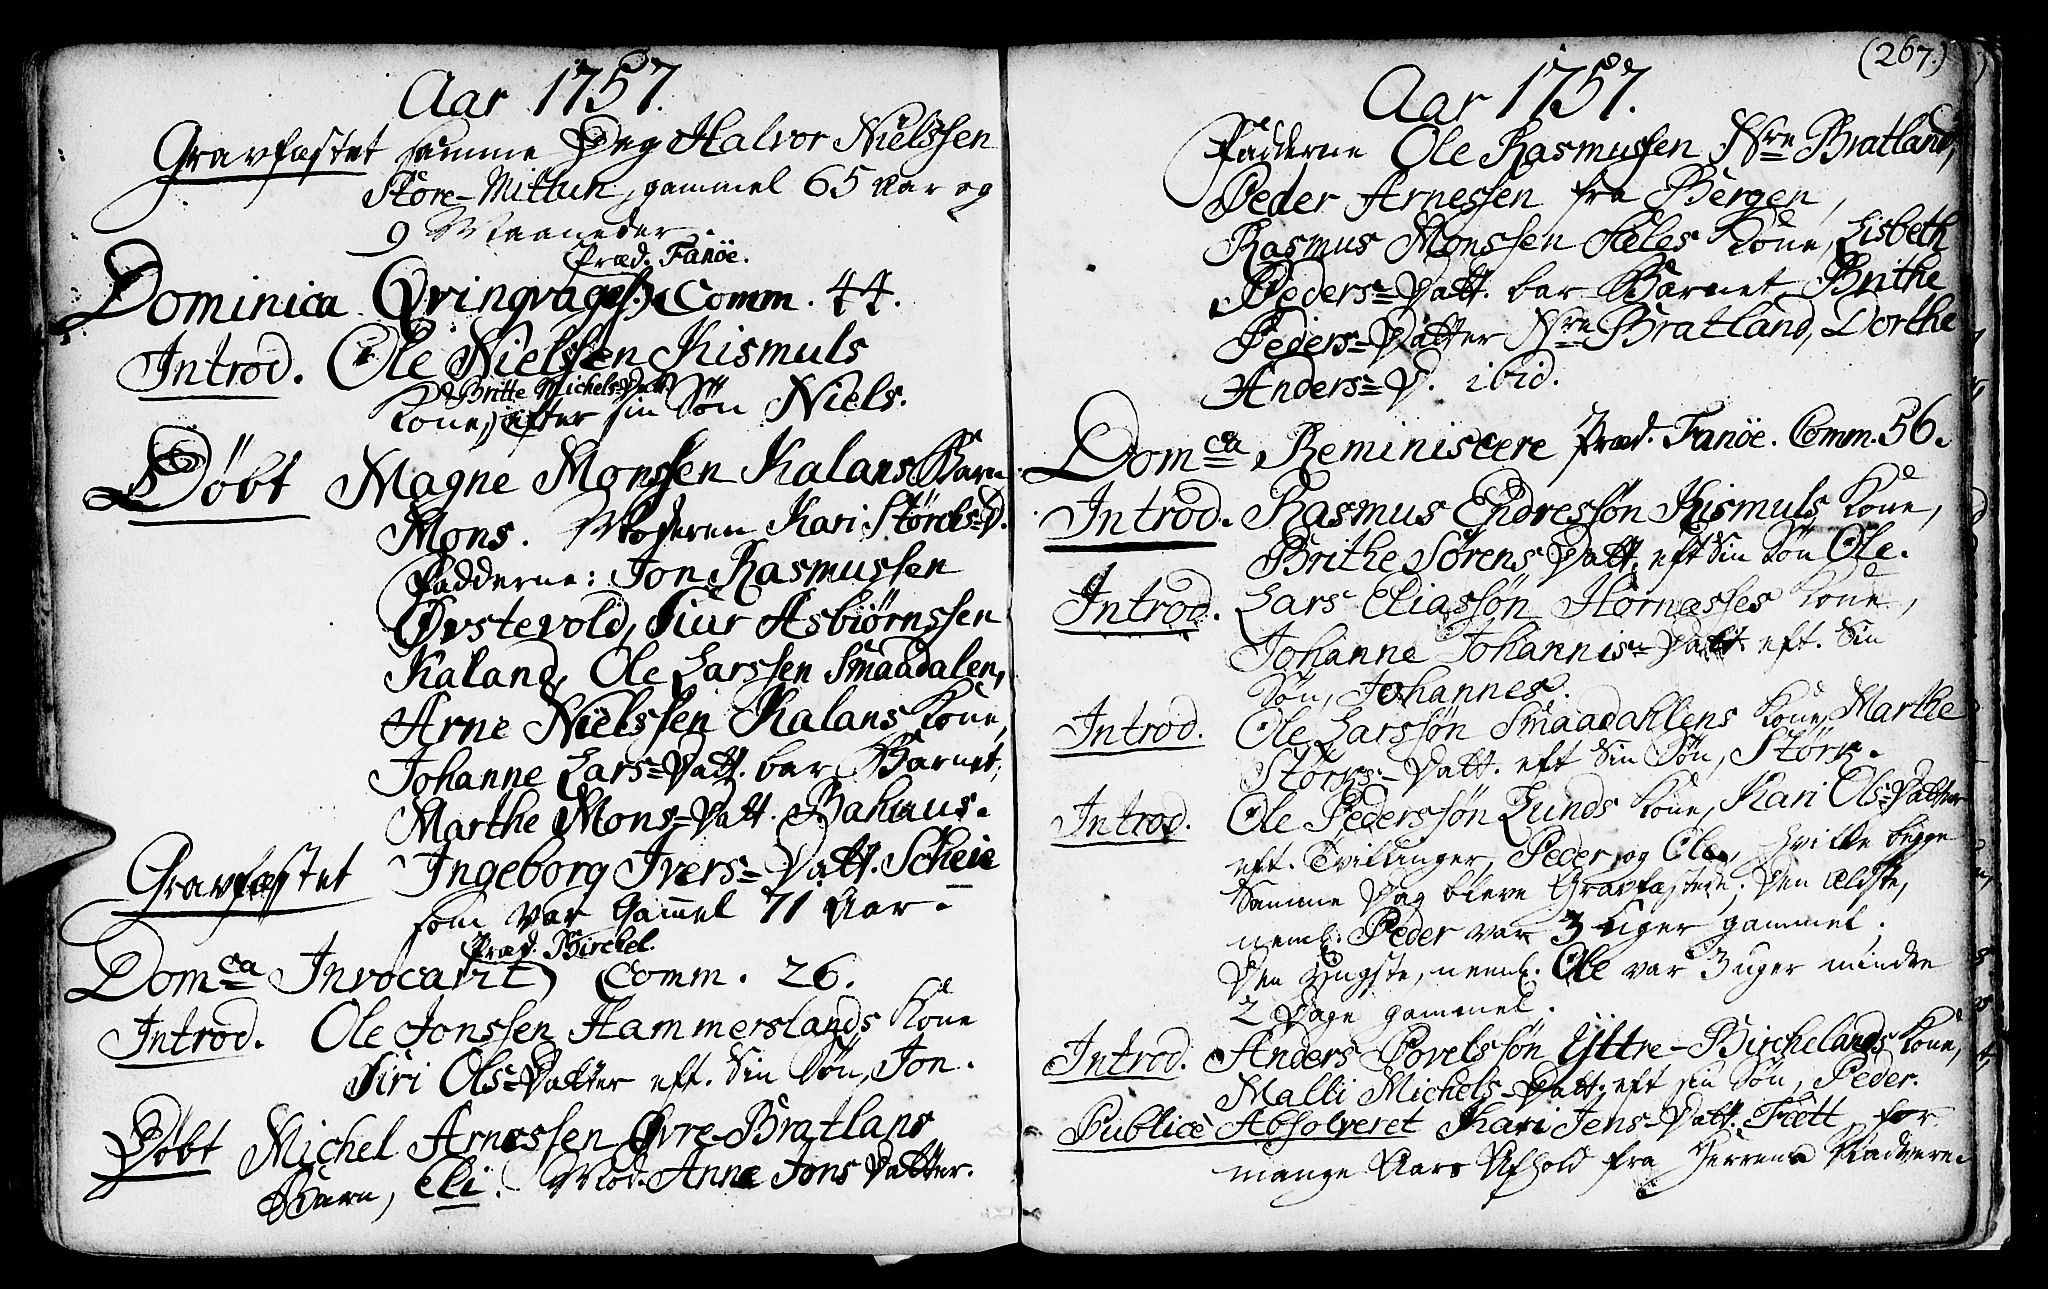 Aar 1757.
Gravfæstet samme Dag Halvor Nielssen
Støre-Mittun, gammel 65 Aar og
9 Maaneder.
Præd. Fanöe.
Dominica Qvinqvages: Comm. 44.
Introd. Ole Nielssen Kismuls
Britte Michels-Datt
Kone, efter sin Søn Niels.
Døbt Magne Monssen Kalans Barn
Mons. Moderen Kari Størcks-D.
Fadderne: Jon Rasmussen
Øvstevold, Siur Asbiørnssen
Kaland, Ole Larssen Smaadalen,
Arne Nielssen Kalans Kone,
Johanne Lars-Datt. bar Barnet,
Marthe Mons-Datt. Bahuus.
Gravfæstet Ingeborg Ivers-Datt. Scheie
som var Gammel 71 Aar.
Præd. Birchel.
Dom:ca Invocavit Comm. 26.
Introd. Ole Jonssen Hammerslands Kone
Siri Ols-Datter eft. Sin Søn, Jon.
Døbt Michel Arnessen Øvre-Bratlans
Barn, Eli. Mod. Anne Jons Datter.
(267.)
Aar 1757.
Fadderne Ole Rasmussen N:re Bratland,
Peder Arnessen fra Bergen,
Rasmus Monssen Seles Kone, Lisbeth
Peders-Datt. bar Barnet, Brithe
Peders-Datter N:re Bratland, Dorthe
Anders-D. ibid.
Dom:ca Reminiscere Præd. Fanöe. Comm. 56.
Introd. Rasmus Endressøn Kismuls Kone,
Brithe Sørens Datt. eft Sin Søn Ole.
Introd. Lars Eliassøn Hornæsses Kone,
Johanne Johannis-Datt eft. Sin
Søn, Johannes.
Introd. Ole Larssøn Smaadahlens Kone, Marthe
Størks-Datt. eft Sin Søn, Størk.
Introd. Ole Pederssøn Lunds Kone, Kari Ols-Datter
eft. Tvillinger, Peder og Ole, hvilke begge
Samme Dag bleve Gravfæstede; Den Ældste,
neml. Peder var 3 uger gammel;
Den Yngste, neml. Ole var 3 uger mindre
2 Dage gammel.
Introd. Anders Povelssøn Yttre-Birchelands Kone,
Malli Michels-Datt. eft sin Søn, Peder.
Publicè Absolveret Kari Jens-Datt. Fiett for
mange Aars Afhold fra Herrens Nadvere.